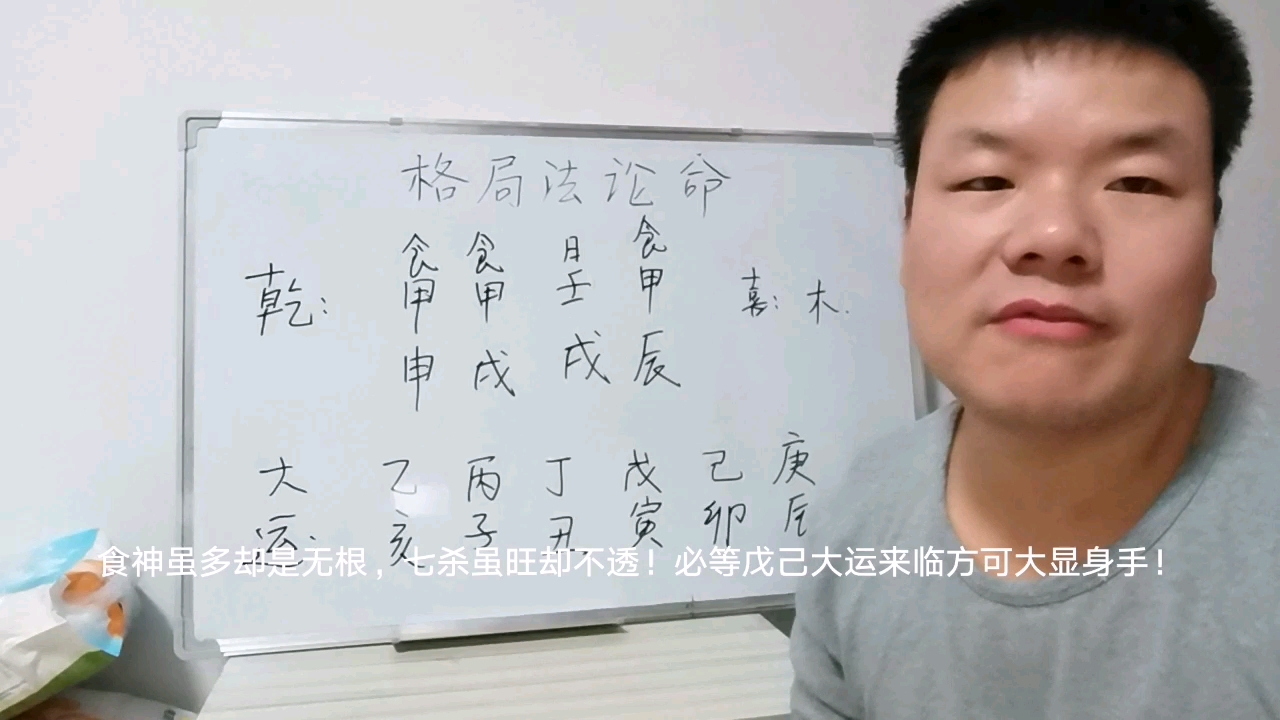 格局法论命
食 食 日 食
乾: 甲 甲 壬 甲 喜: 木.
申 戌 戌 辰
大 乙 丙 丁 戊 己 庚
运: 亥 子 丑 寅 卯 辰
食神虽多却是无根，七杀虽旺却不透！必等戊己大运来临方可大显身手！